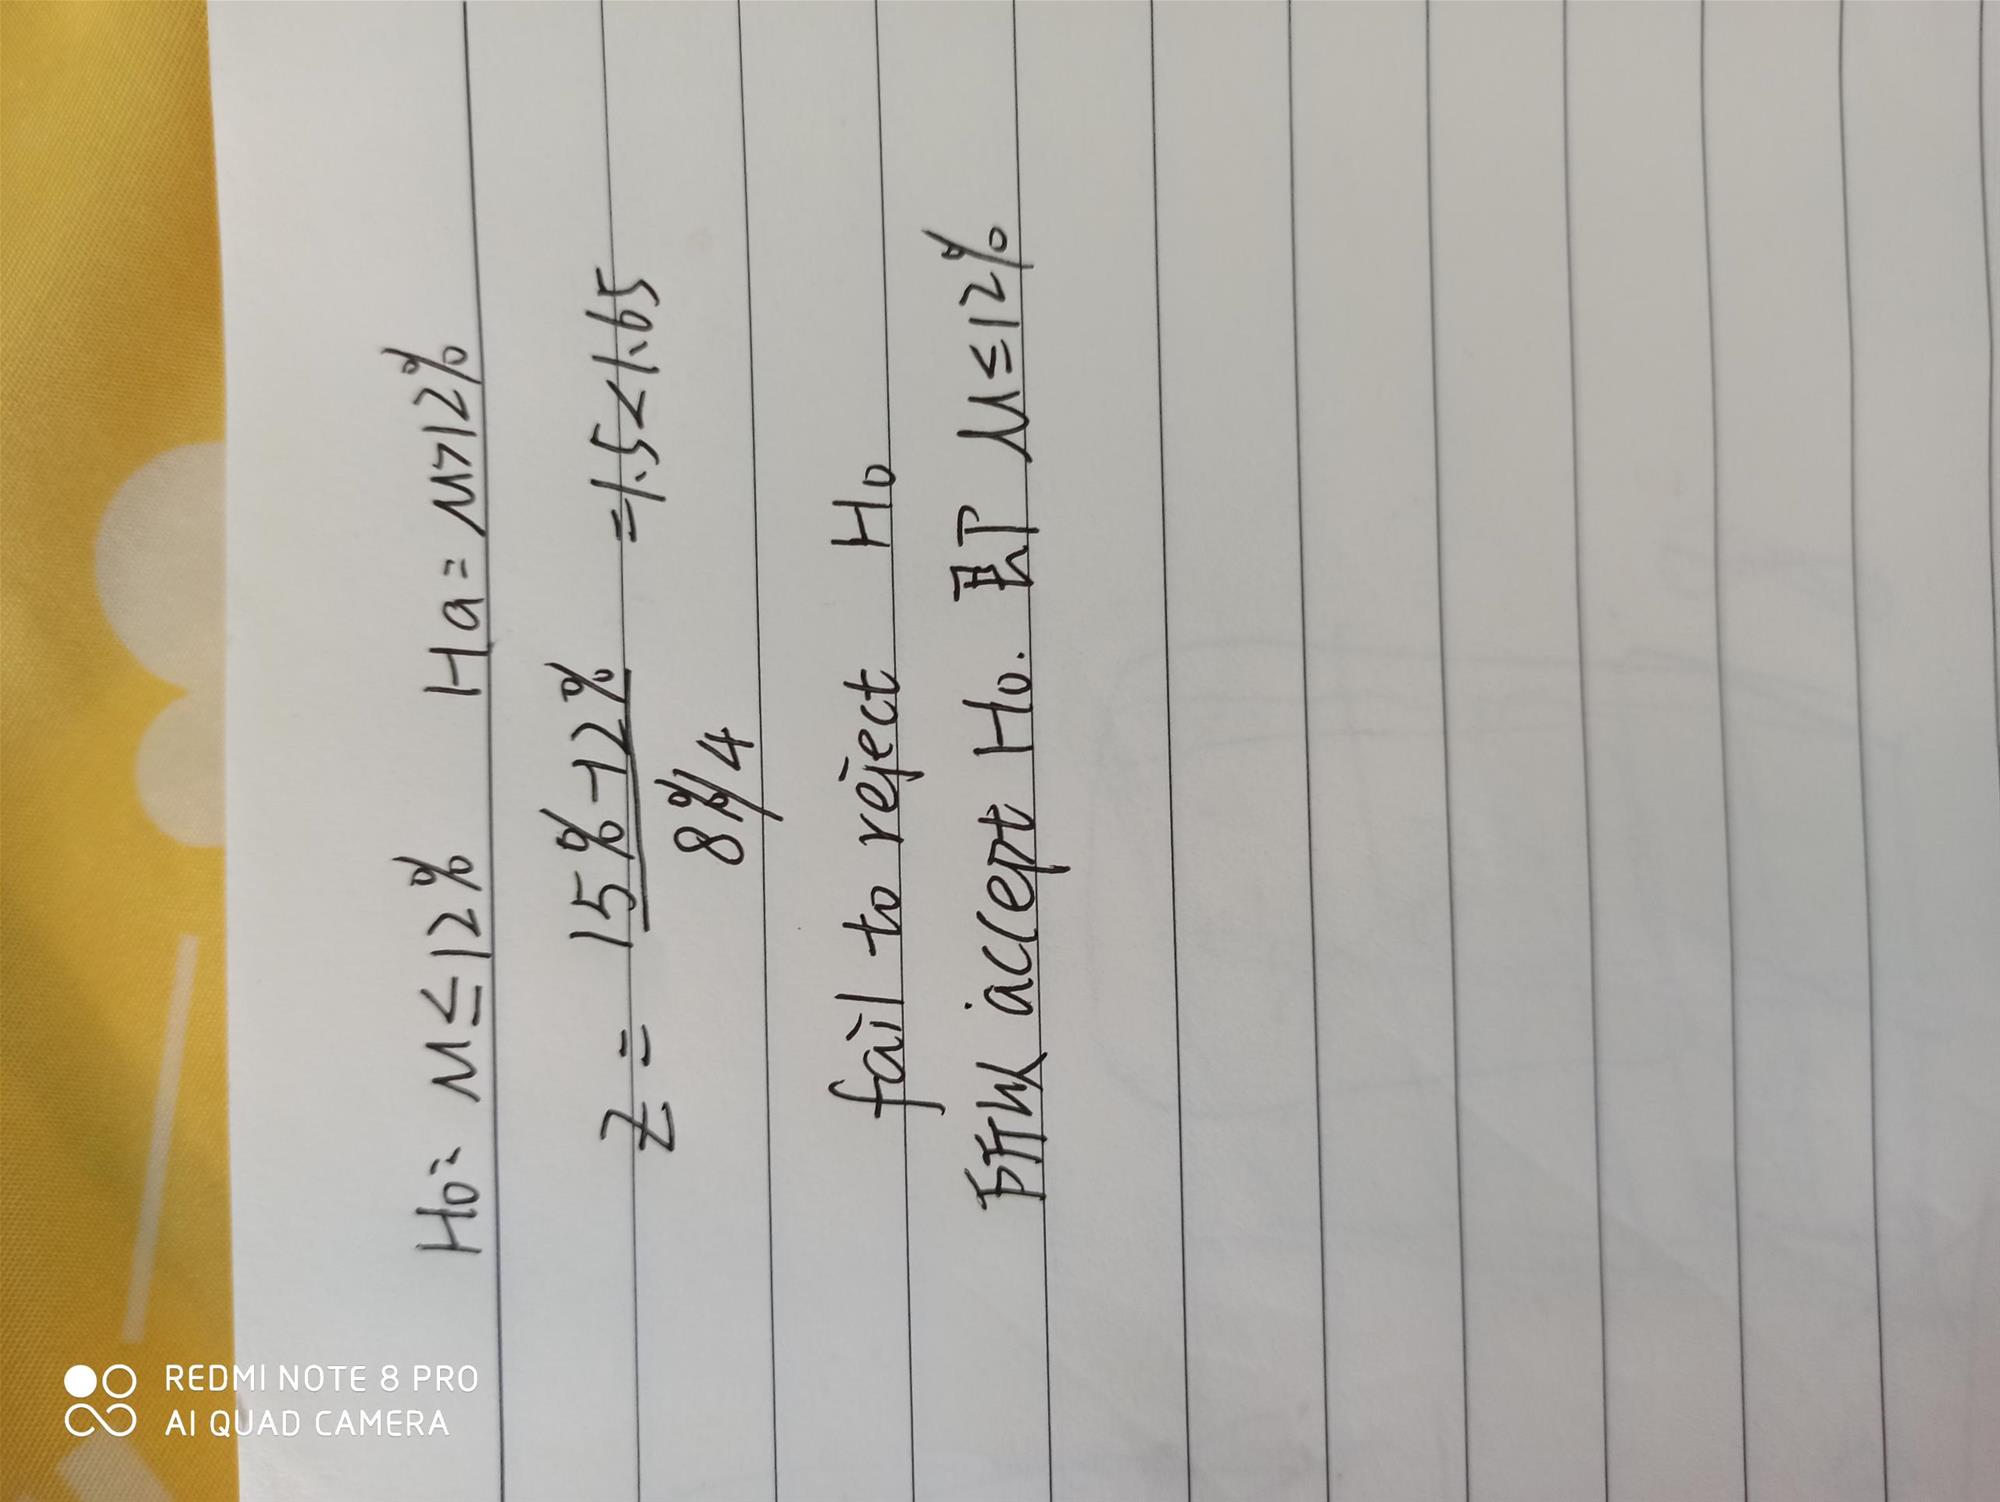 H0: μ≤12% Ha: μ>12%
Z = 15%-12% / 8%/4 = 1.5<1.65
fail to reject H0
所以 accept H0. 即 μ≤12%
REDMI NOTE 8 PRO
AI QUAD CAMERA